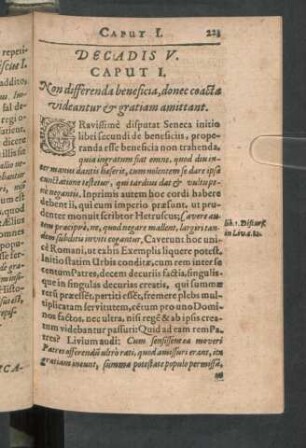 CAPUT I.
DECADIS V.
CAPUT I.
Non differenda beneficia, donec coacta
videantur & gratiam amittant.
GRavissimè disputat Seneca initio
libri secundi de beneficiis, prope-
randa esse beneficia non trahenda,
quia ingratum fiat omne, quod diu in-
ter manus dantis hæserit, cum
se dare ipsa
negantis. Inprimis autem hoc cordi habere
debent ii, qui cum imperio præsunt, ut pru-
denter monuit scribtor Hetruscus; Cavere au-
tem præcipuè, ne, quod negare mallent, largiri tan-
dem subditis inviti cogantur. Caverunt hoc uni-
cè Romani, ut ex his Exemplis liquere potest.
Initio statim Urbis conditæ, cum rem inter cen-
tum Patres, decem decuriis factis, singulis-
que in singulas decurias creatis, qui summæ
rerum præesset, partiti essēt, fremere plebs mul-
tiplicatam servitutem, cētum pro uno Domi-
nos factos. nec ultra, nisi regē & ab ipsis crea-
tum videbantur passuri: Quid ad eam rem Pa-
tres? Livium audi: Cum sensissent ea moveri
Patres offerendū ultrò rati, quod amissuri erant, ita
gratiam ineunt, summa potestate populo permissa,
lib. 1. Discurs.
in Liv.